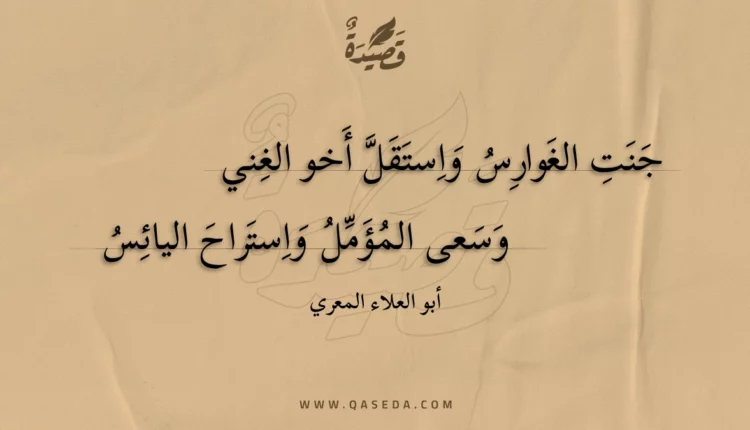 قَصِيدَةٌ
جَنَتِ الغَوارِسُ وَاِستَقَلَّ أَخو الغِني
وَسَعى المُؤَمِّلُ وَاِستَراحَ اليائِسُ
أبو العلاء المعري
WWW.QASEDA.COM